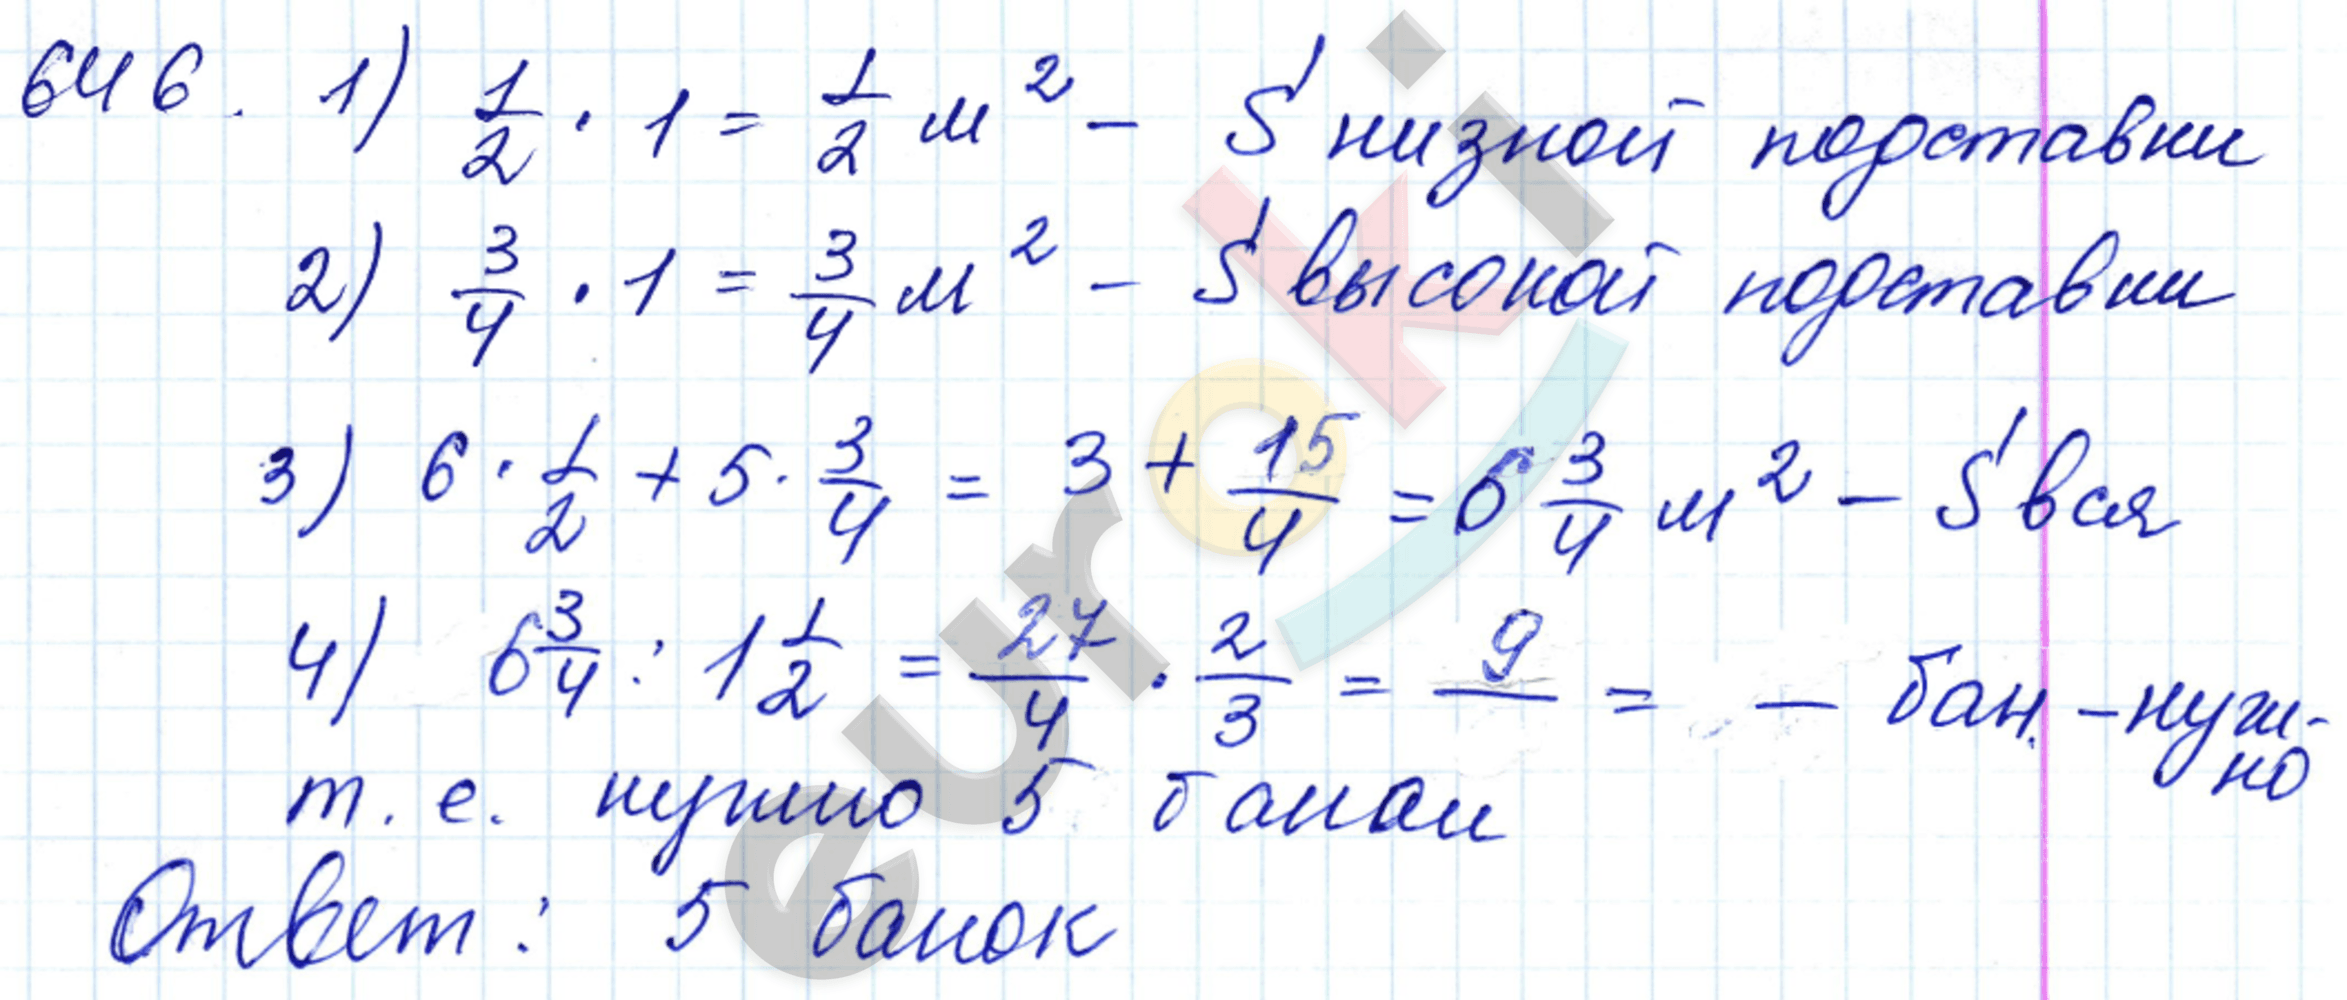 646. 1) 1/2 · 1 = 1/2 м² – S низкой подставки
2) 3/4 · 1 = 3/4 м² – S высокой подставки
3) 6 · 1/2 + 5 · 3/4 = 3 + 15/4 = 6 3/4 м² – S вся
4) 6 3/4 : 1 1/2 = 27/4 · 2/3 = 9/ = – бан. – нуж-
но
т. е. нужно 5 банок
Ответ: 5 банок
euroki